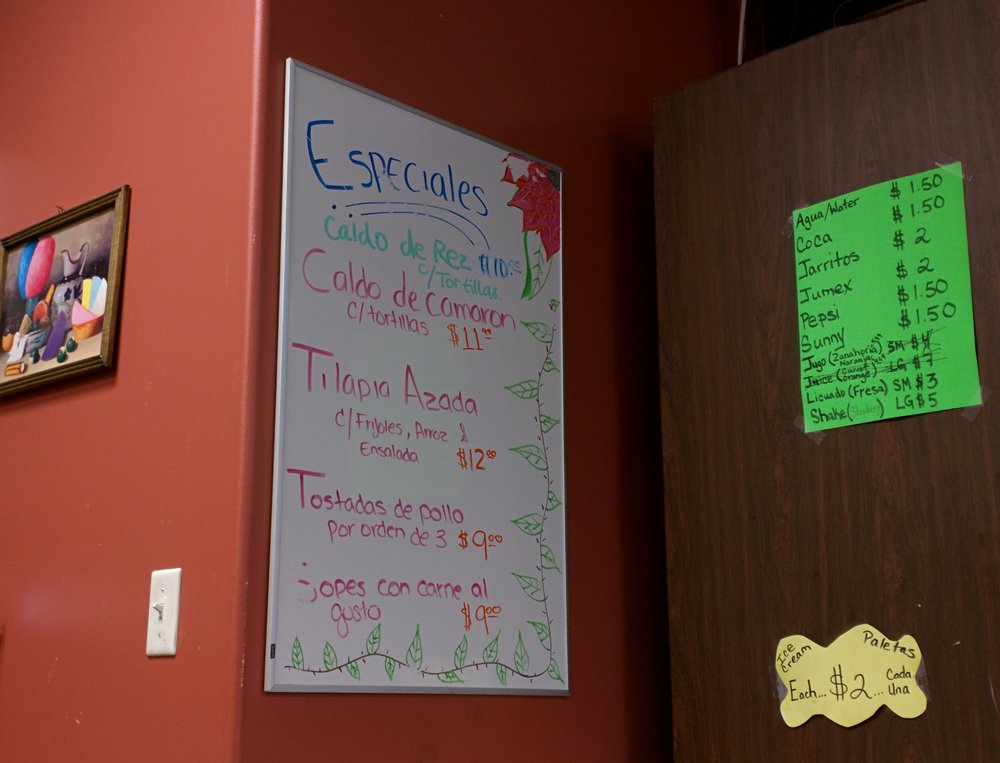 Especiales
Caldo de Rez $10.00
c/Tortillas.
Caldo de camaron
c/tortillas $11.00
Tilapia Azada
c/Frijoles, Arroz &
Ensalada $12.00
Tostadas de pollo
por orden de 3 $9.00
Sopes con carne al
gusto $9.00
Agua/Water $ 1.50
Coca $ 1.50
Jarritos $ 2
Jumex $ 2
Pepsi $1.50
Sunny $1.50
Jugo (Zanahoria/Naranja) SM $4
Juice (Carrot/orange) LG $7
Licuado (Fresa) SM $3
Shake LG $5
Ice cream Paletas
Each... $2 ... Cada Una